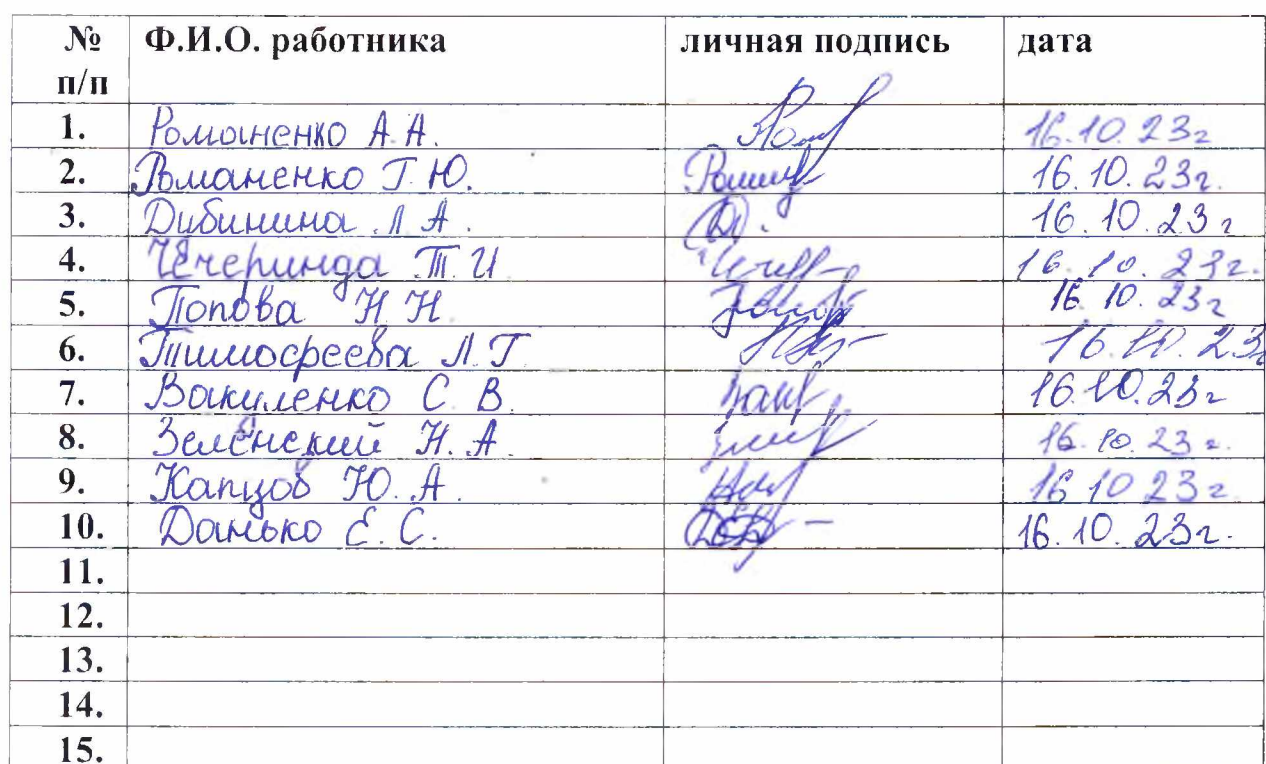 № п/п Ф.И.О. работника личная подпись дата
1. Романенко А.А. 16.10.23г
2. Романенко Г.Ю. 16.10.23г.
3. Дубинина Л.А. 16.10.23г
4. Чечеринда Т.И 16.10.23г.
5. Попова Н Н 16.10.23г
6. Тимофеева Л.Г 16.10.23г
7. Вакуленко С В. 16.10.23г
8. Зеленский Н.А. 16.10.23г.
9. Капцов Ю.А. 16 10 23г
10. Данько Е.С. 16.10.23г.
11.
12.
13.
14.
15.